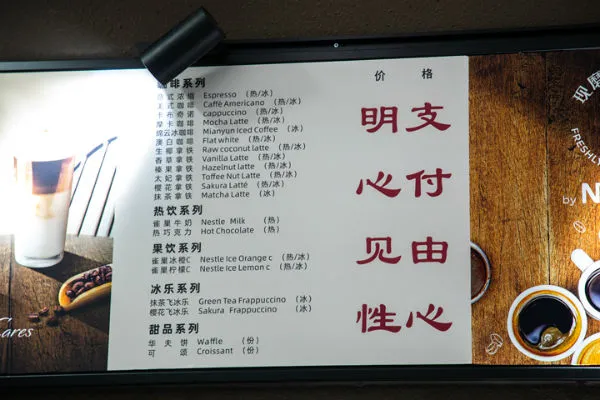 咖啡系列
意式浓缩 Espresso (热/冰)
美式咖啡 Caffè Americano (热/冰)
卡布奇诺 cappuccino (热/冰)
摩卡咖啡 Mocha Latte (热/冰)
绵云冰咖啡 Mianyun Iced Coffee (冰)
澳白咖啡 Flat white (热/冰)
生椰拿铁 Raw coconut latte (热/冰)
香草拿铁 Vanilla Latte (热/冰)
榛果拿铁 Hazelnut latte (热/冰)
太妃拿铁 Toffee Nut Latte (热/冰)
樱花拿铁 Sakura Latte (热/冰)
抹茶拿铁 Matcha Latte (冰)
热饮系列
雀巢牛奶 Nestle Milk (热)
热巧克力 Hot Chocolate (热)
果饮系列
雀巢冰橙C Nestle Ice Orange c (热/冰)
雀巢柠檬C Nestle Ice Lemon c (热/冰)
冰乐系列
抹茶飞冰乐 Green Tea Frappuccino (冰)
樱花飞冰乐 Sakura Frappuccino (冰)
甜品系列
华夫饼 Waffle (份)
可颂 Croissant (份)
价格
支付由心
明心见性
现磨
FRESHLY
by N
ares